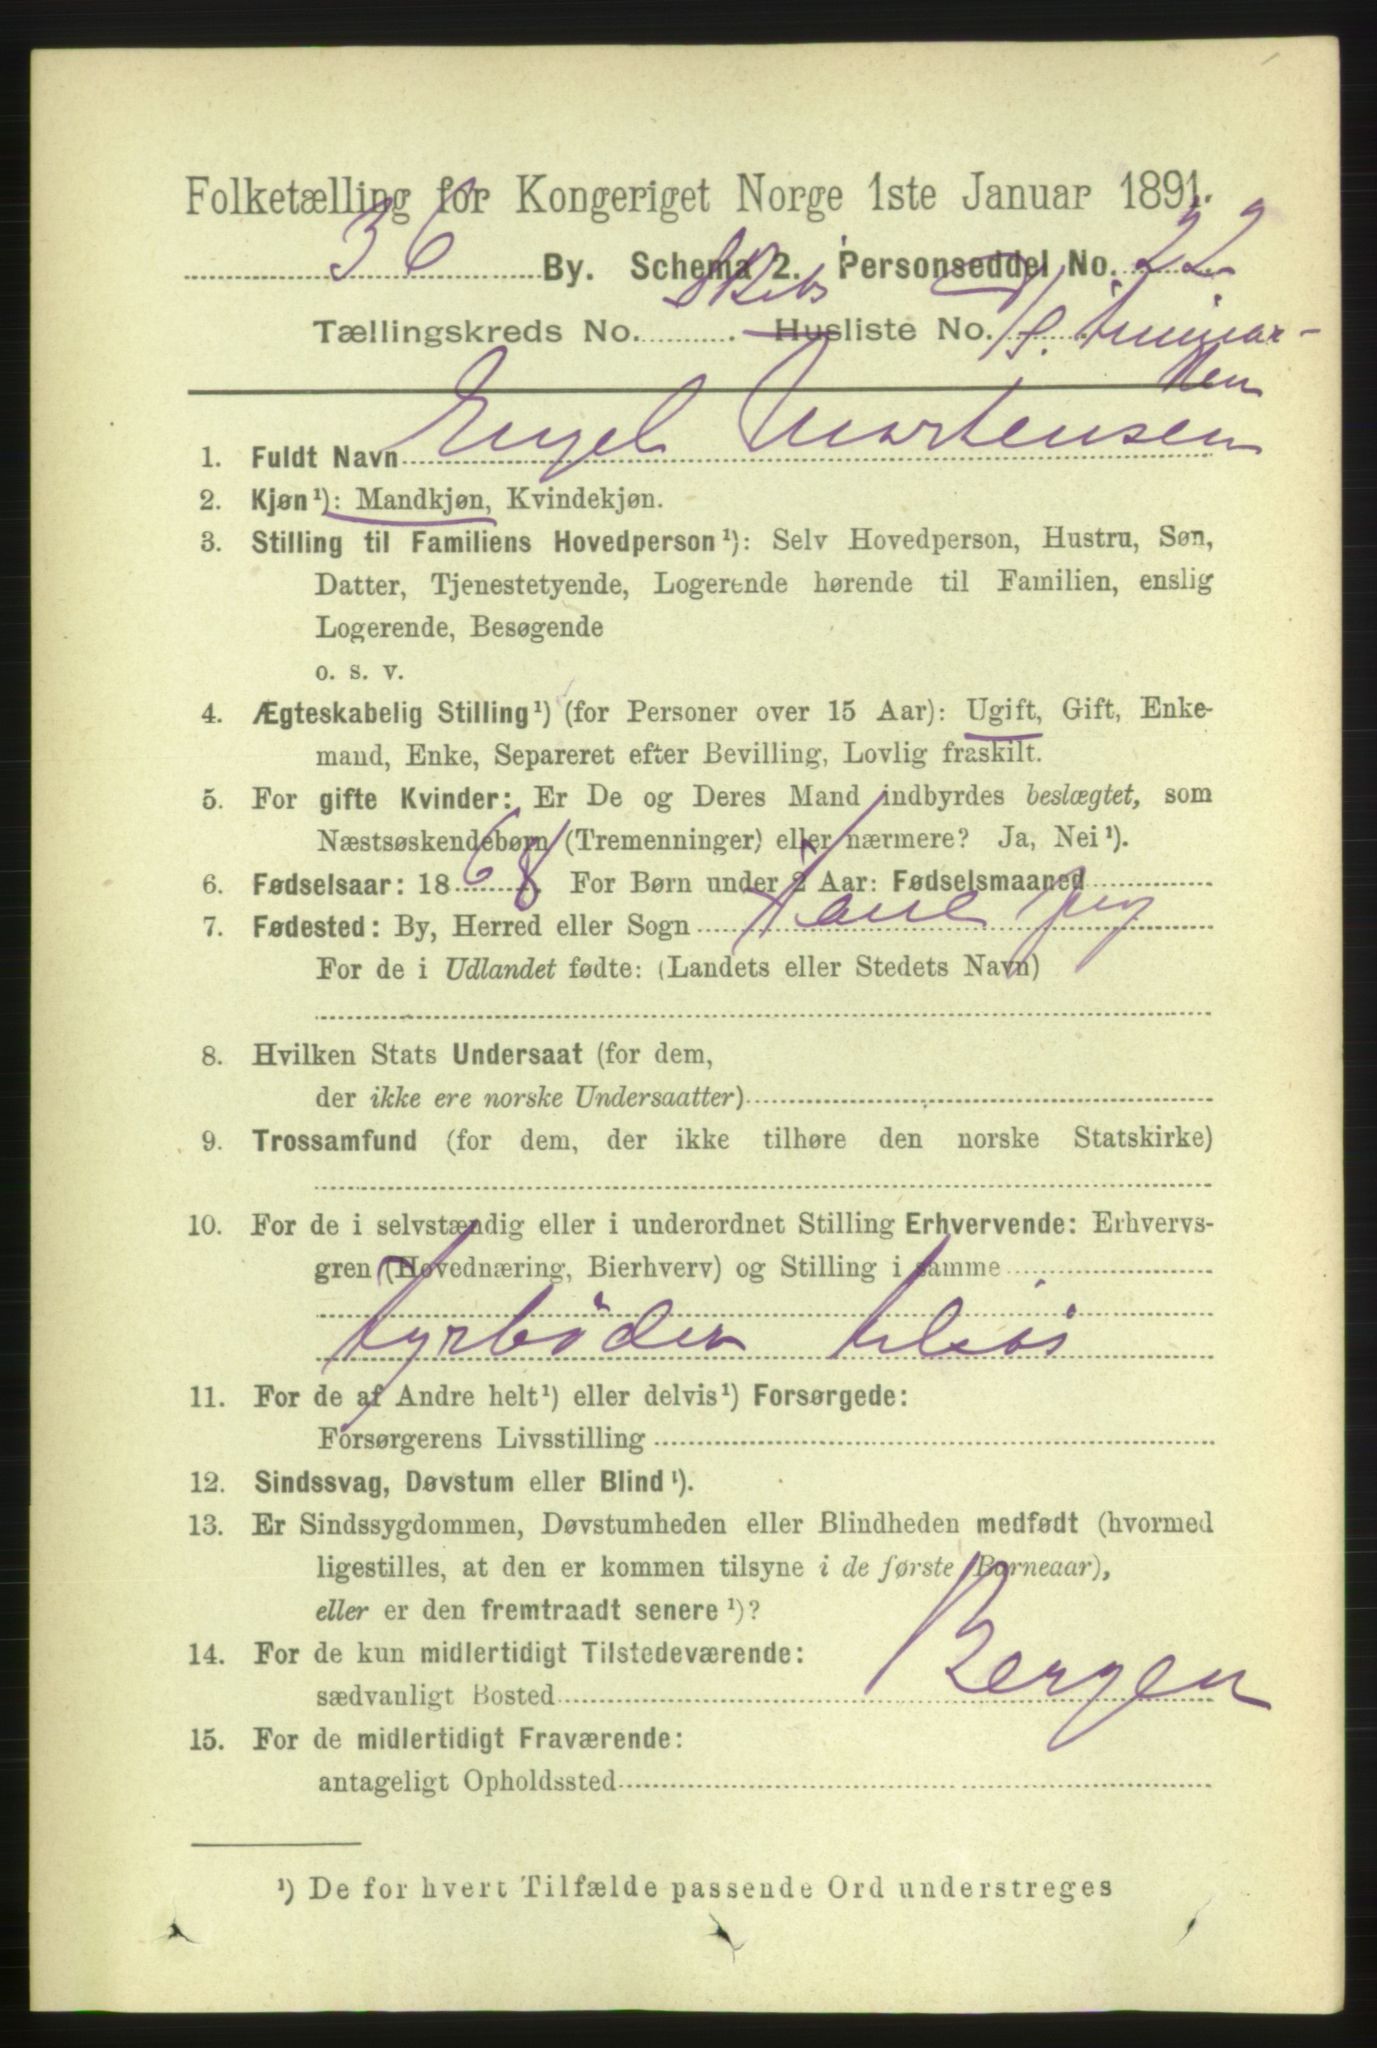 Folketælling for Kongeriget Norge 1ste Januar 1891.
36 By. Schema 2. Personseddel No. 22
Skibs
Tællingskreds No. Husliste No.
1. Fuldt Navn Engel Martensen
2. Kjøn ¹): Mandkjøn, Kvindekjøn.
3. Stilling til Familiens Hovedperson ¹): Selv Hovedperson, Hustru, Søn,
Datter, Tjenestetyende, Logerende hørende til Familien, enslig
Logerende, Besøgende
o. s. v.
4. Ægteskabelig Stilling ¹) (for Personer over 15 Aar): Ugift, Gift, Enke-
mand, Enke, Separeret efter Bevilling, Lovlig fraskilt.
5. For gifte Kvinder: Er De og Deres Mand indbyrdes beslægtet, som
Næstsøskendebørn (Tremenninger) eller nærmere? Ja, Nei ¹).
6. Fødselsaar: 1868 For Børn under 2 Aar: Fødselsmaaned
7. Fødested: By, Herred eller Sogn
For de i Udlandet fødte: (Landets eller Stedets Navn)
8. Hvilken Stats Undersaat (for dem,
der ikke ere norske Undersaatter)
9. Trossamfund (for dem, der ikke tilhøre den norske Statskirke)
10. For de i selvstændig eller i underordnet Stilling Erhvervende: Erhvervs-
gren (Hovednæring, Bierhverv) og Stilling i samme
fyrböder
11. For de af Andre helt ¹) eller delvis ¹) Forsørgede:
Forsørgerens Livsstilling
12. Sindssvag, Døvstum eller Blind ¹).
13. Er Sindssygdommen, Døvstumheden eller Blindheden medfødt (hvormed
ligestilles, at den er kommen tilsyne i de første Barneaar),
eller er den fremtraadt senere ¹)?
14. For de kun midlertidigt Tilstedeværende:
sædvanligt Bosted Bergen
15. For de midlertidigt Fraværende:
antageligt Opholdssted
¹) De for hvert Tilfælde passende Ord understreges